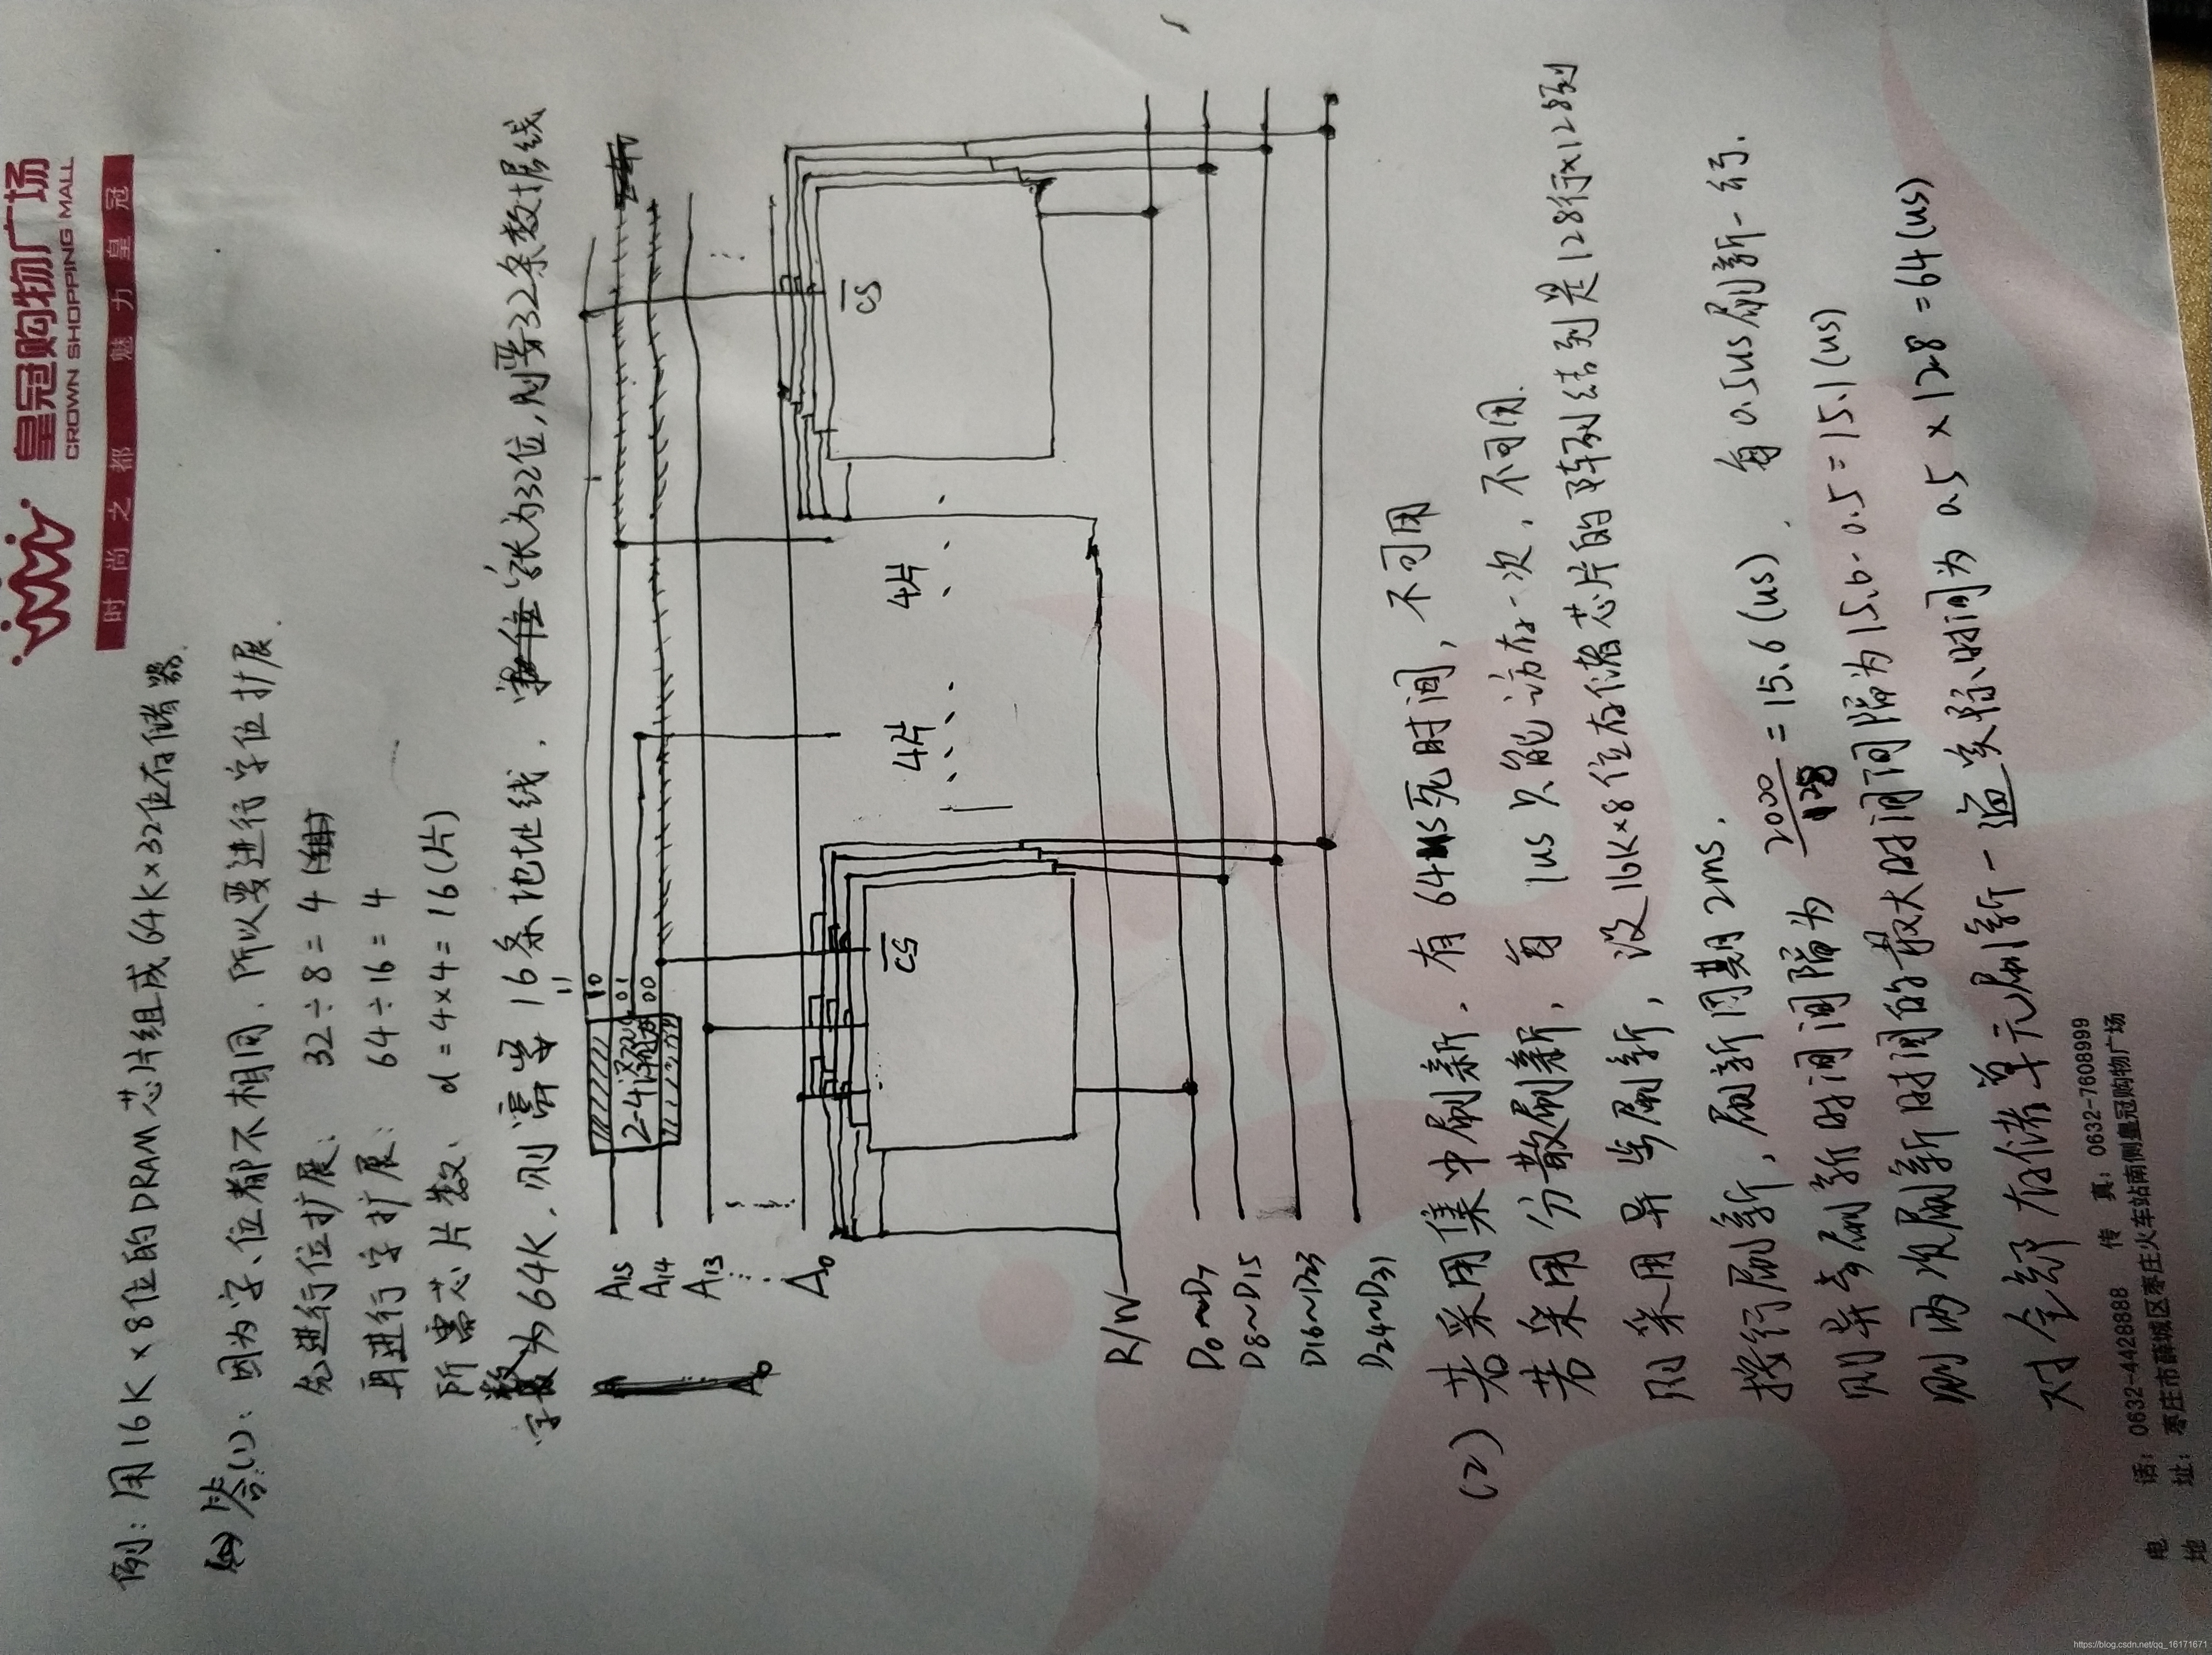 皇冠购物广场
CROWN SHOPPING MALL
时尚之都 魅力皇冠
例：用16K×8位的DRAM芯片组成64K×32位存储器.
答(1)：因为字、位都不相同，所以要进行字位扩展.
先进行位扩展：32÷8=4
再进行字扩展：64÷16=4
所需芯片数：d=4×4=16(片)
字数为64K，则需要16条地址线. 字长为32位，则要32条数据线
11
10
01
00
2-4译码器
A15
A14
A13
A0
A0
CS
4片
4片
CS
R/W
D0~D7
D8~D15
D16~D23
D24~D31
(2) 若采用集中刷新，有64us死时间，不可用
若采用分散刷新，每1us只能访存一次，不可用.
则采用异步刷新，设16K×8位存储芯片的阵列结列是128行×128列
按行刷新，刷新周期2ms.
则异步刷新时间间隔为 2000/128=15.6(us). 每0.5us刷新一行.
则两次刷新时间的最大时间间隔为15.6-0.5=15.1(us)
对全部存储单元刷新一遍实际时间为0.5×128=64(us)
电 话：0632-4428888 传 真：0632-7608999
地 址：枣庄市薛城区枣庄火车站南侧皇冠购物广场
https://blog.csdn.net/qq_16171671